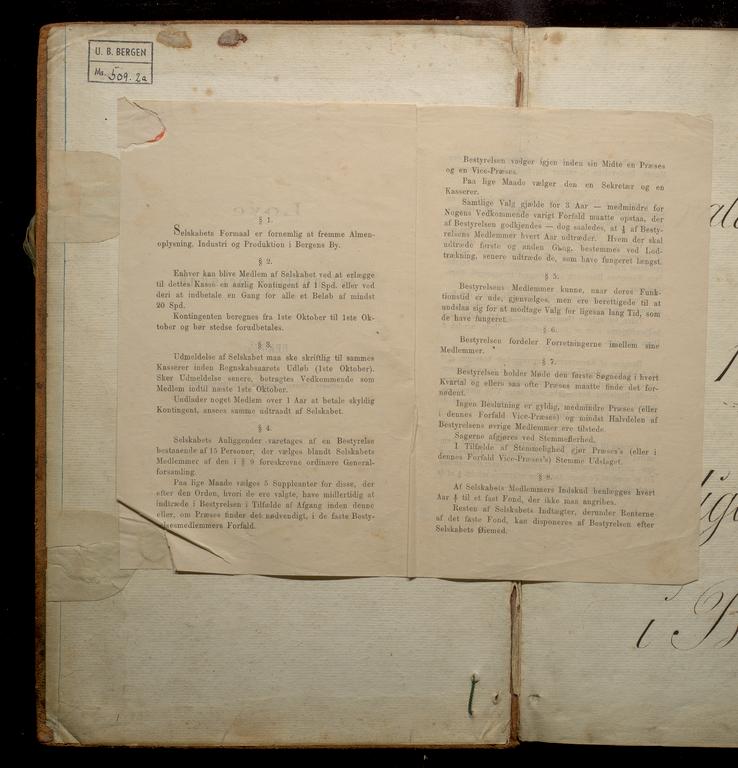 U. B. BERGEN
Ms. 509. 2a
§ 1.
Selskabets Formaal er fornemlig at fremme Almen-
oplysning, Industri og Produktion i Bergens By.
§ 2.
Enhver kan blive Medlem af Selskabet ved at erlægge
til dettes Kasse en aarlig Kontingent af 1 Spd. eller ved
deri at indbetale en Gang for alle et Beløb af mindst
20 Spd.
Kontingenten beregnes fra 1ste Oktober til 1ste Ok-
tober og bør stedse forudbetales.
§ 3.
Udmeldelse af Selskabet maa ske skriftlig til sammes
Kasserer inden Regnskabsaarets Udløb (1ste Oktober).
Sker Udmeldelse senere, betragtes Vedkommende som
Medlem indtil næste 1ste Oktober.
Undlader noget Medlem over 1 Aar at betale skyldig
Kontingent, ansees samme udtraadt af Selskabet.
§ 4.
Selskabets Anliggender varetages af en Bestyrelse
bestaaende af 15 Personer, der vælges blandt Selskabets
Medlemmer af den i § 9 foreskrevne ordinære General-
forsamling.
Paa lige Maade vælges 5 Suppleanter for disse, der
efter den Orden, hvori de ere valgte, have midlertidig at
indtræde i Bestyrelsen i Tilfælde af Afgang inden denne
eller, om Præses finder det nødvendigt, i de faste Besty-
relsesmedlemmers Forfald.
Bestyrelsen vælger igjen inden sin Midte en Præses
og en Vice-Præses.
Paa lige Maade vælger den en Sekretær og en
Kasserer.
Samtlige Valg gjælde for 3 Aar — medmindre for
Nogens Vedkommende varigt Forfald maatte opstaa, der
af Bestyrelsen godkjendes — dog saaledes, at ⅓ af Besty-
relsens Medlemmer hvert Aar udtræder. Hvem der skal
udtræde første og anden Gang, bestemmes ved Lod-
trækning, senere udtræde de, som have fungeret længst.
§ 5.
Bestyrelsens Medlemmer kunne, naar deres Funk-
tionstid er ude, gjenvælges, men ere berettigede til at
undslaa sig for at modtage Valg for ligesaa lang Tid, som
de have fungeret.
§ 6.
Bestyrelsen fordeler Forretningerne imellem sine
Medlemmer.
§ 7.
Bestyrelsen holder Møde den første Søgnedag i hvert
Kvartal og ellers saa ofte Præses maatte finde det for-
nødent.
Ingen Beslutning er gyldig, medmindre Præses (eller
i dennes Forfald Vice-Præses) og mindst Halvdelen af
Bestyrelsens øvrige Medlemmer ere tilstede.
Sagerne afgjøres ved Stemmeflerhed.
I Tilfælde af Stemmelighed gjør Præses's (eller i
dennes Forfald Vice-Præses's) Stemme Udslaget.
§ 8.
Af Selskabets Medlemmers Indskud henlægges hvert
Aar til et fast Fond, der ikke maa angribes.
Resten af Selskabets Indtægter, derunder Renterne
af det faste Fond, kan disponeres af Bestyrelsen efter
Selskabets Øiemed.
i B